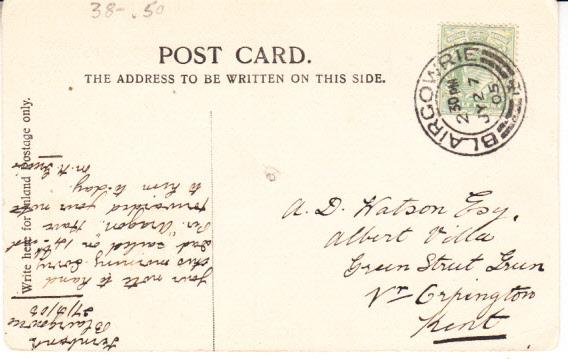 38-.50
POST CARD.
THE ADDRESS TO BE WRITTEN ON THIS SIDE.
Write here for Inland Postage only.
BLAIRGOWRIE
2 30 PM
JY 27
05
A. D. Watson Esq,
Albert Villa
Green Street Green
Nr Orpington
Kent
Blairgowrie
your note to hand
this morning. Sorry
Dad sailed on 14th
Per "Aragon". Have
forwarded your note
to him to-day.